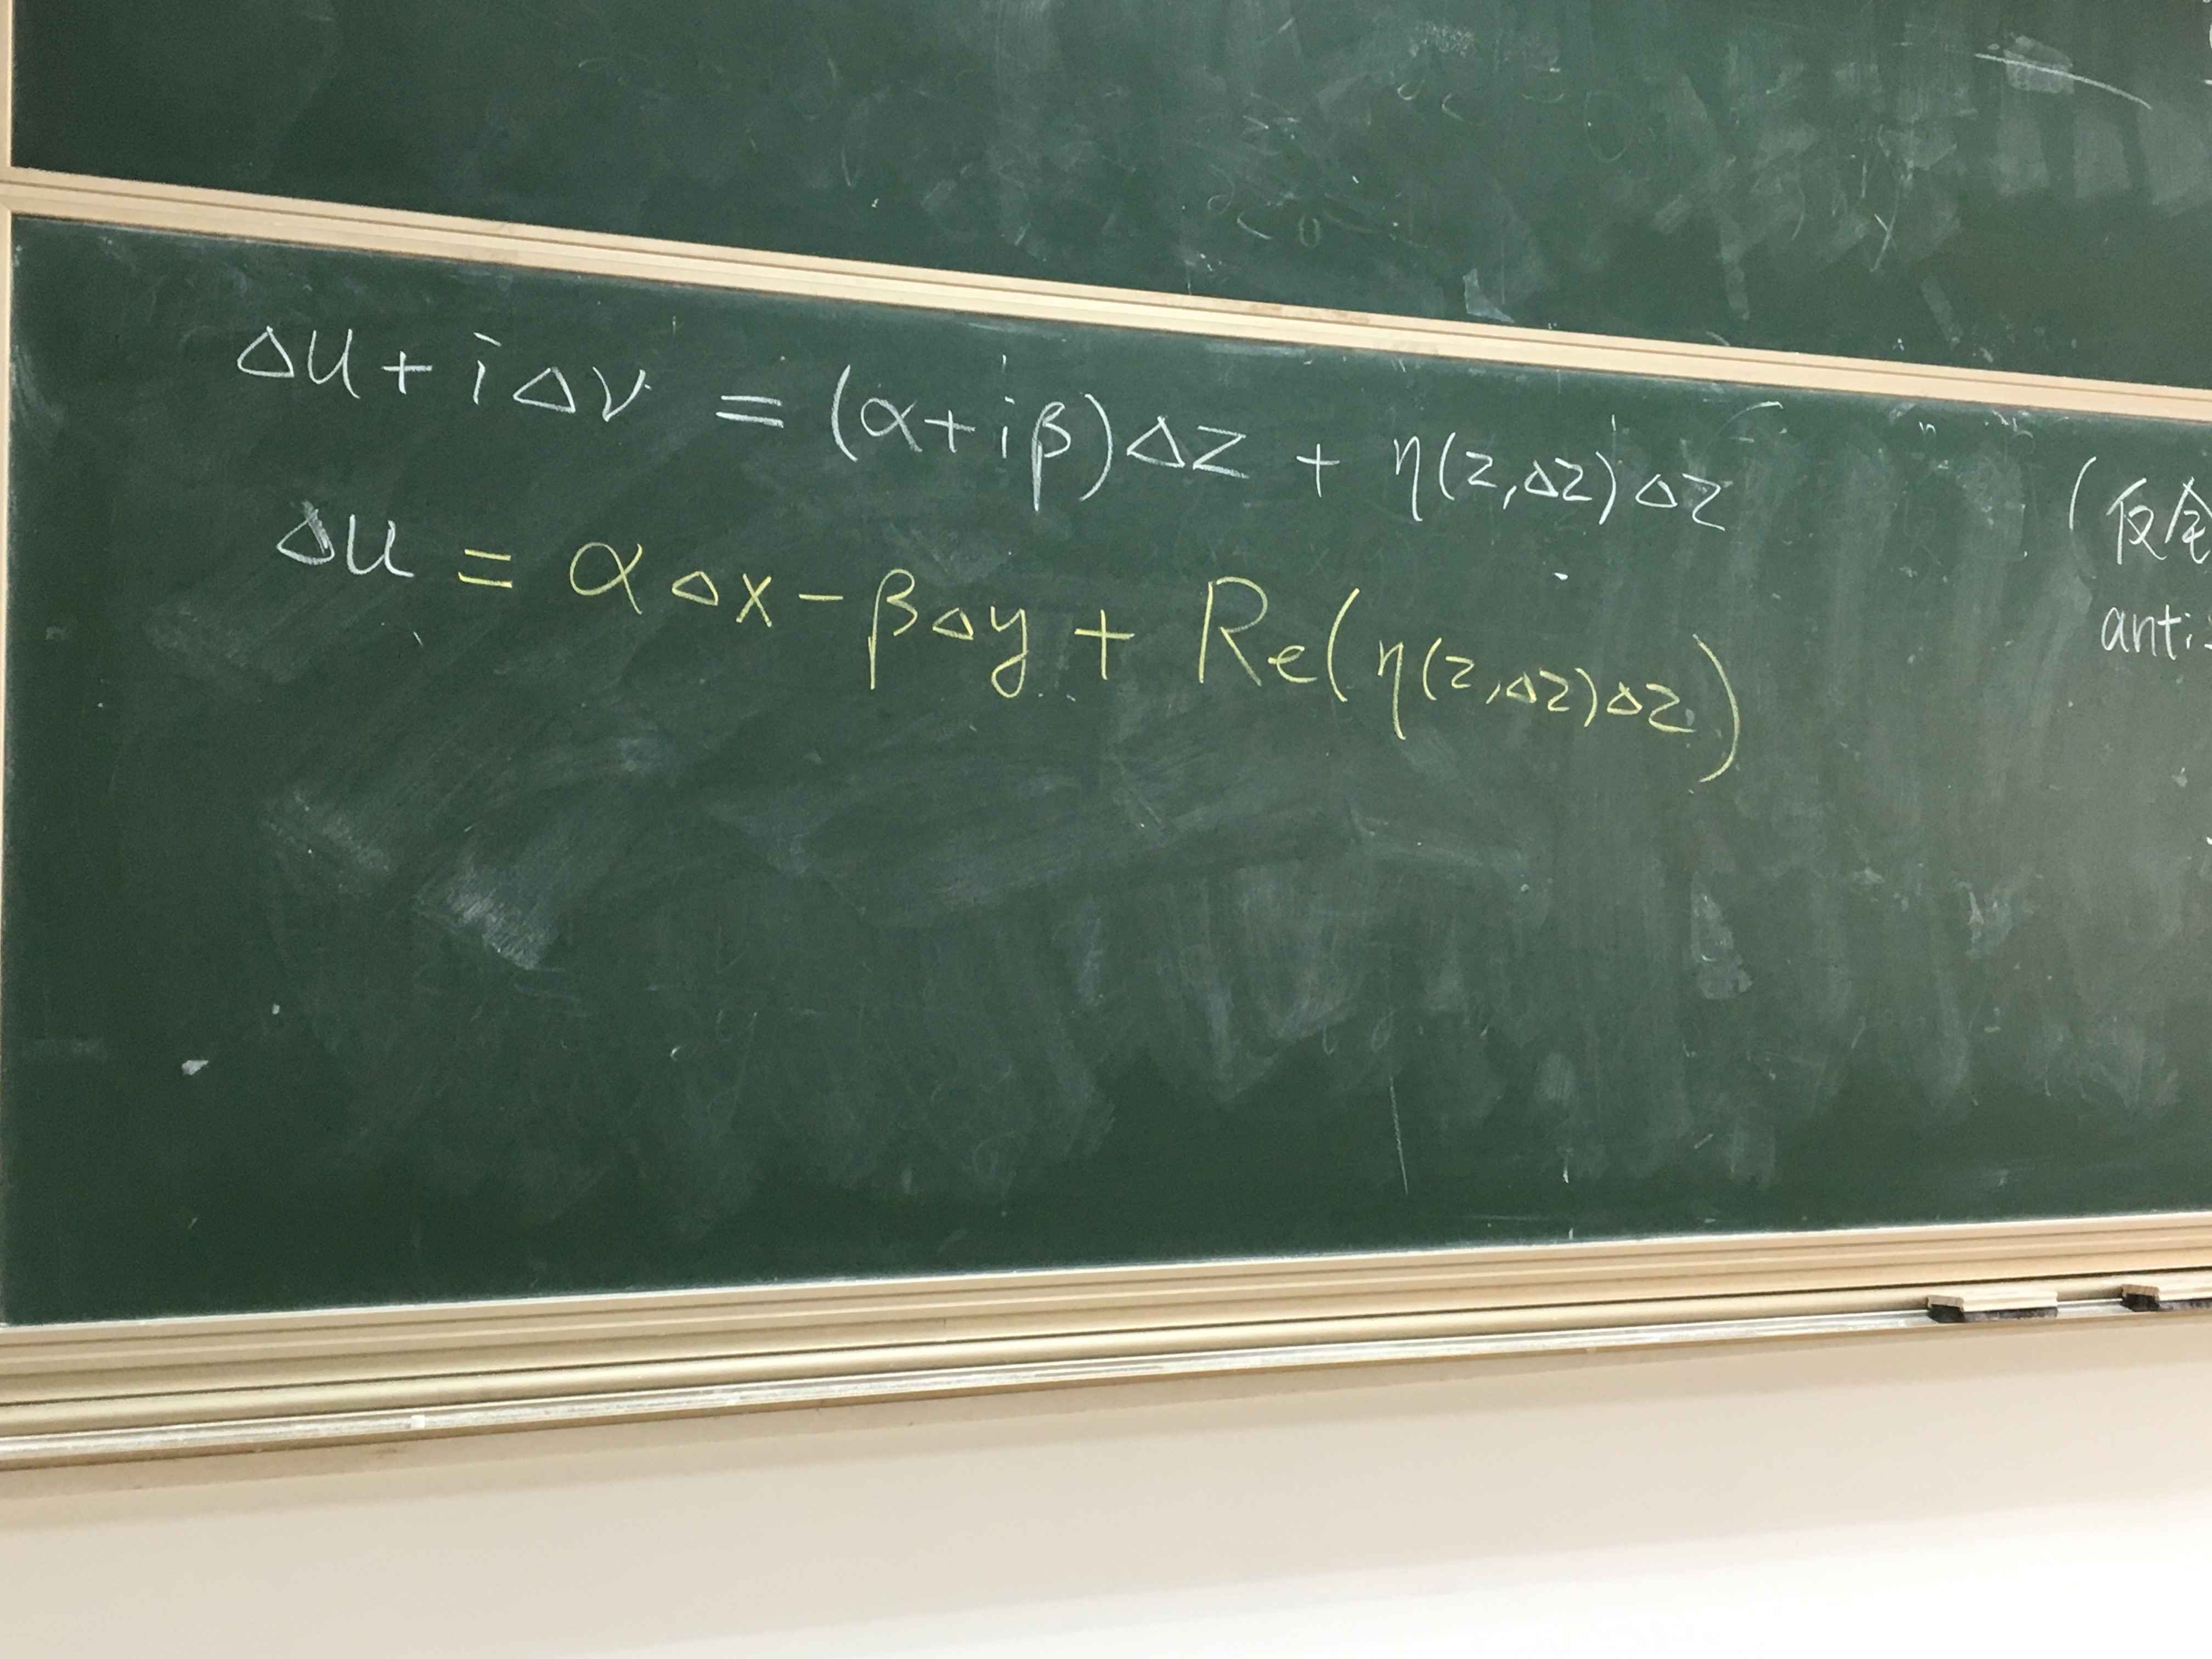 Δu + iΔv = (α+iβ)Δz + η(z,Δz)Δz
Δu = αΔx - βΔy + Re(η(z,Δz)Δz)
(反全
anti-